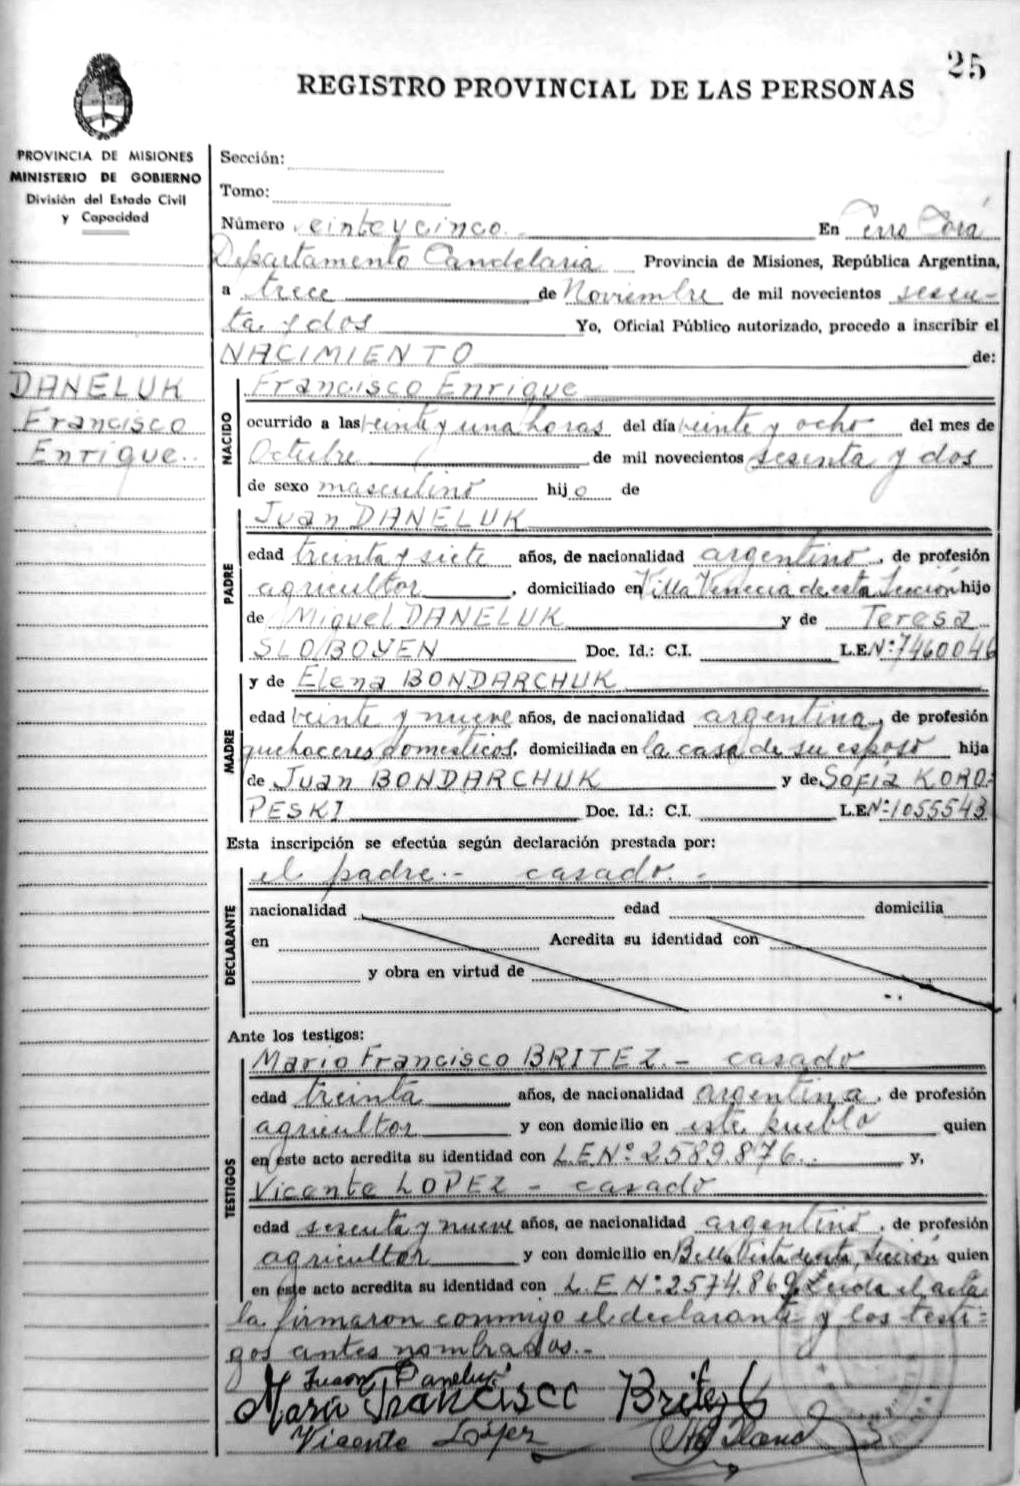 25
REGISTRO PROVINCIAL DE LAS PERSONAS
PROVINCIA DE MISIONES
MINISTERIO DE GOBIERNO
División del Estado Civil
y Capacidad
DANELUK
Francisco
Enrique
Sección:
Tomo:
Número veinte y cinco. En Cerro Corá
Departamento Candelaria Provincia de Misiones, República Argentina,
a trece de Noviembre de mil novecientos sesen-
ta y dos Yo, Oficial Público autorizado, procedo a inscribir el
NACIMIENTO de:
NACIDO
Francisco Enrique
ocurrido a las veinte y una horas del día veinte y ocho del mes de
Octubre de mil novecientos sesenta y dos
de sexo masculino hijo de
PADRE
Juan DANELUK
edad treinta y siete años, de nacionalidad argentino, de profesión
agricultor, domiciliado en Villa Venecia de esta Sección hijo
de Miguel DANELUK y de Teresa
SLOBOYEN Doc. Id.: C.I. L.E.Nº:7460046
MADRE
y de Elena BONDARCHUK
edad veinte y nueve años, de nacionalidad argentina, de profesión
quehaceres domésticos, domiciliada en la casa de su esposo hija
de Juan BONDARCHUK y de Sofía KORO-
PESKI Doc. Id.: C.I. L.E.Nº:1055543
Esta inscripción se efectúa según declaración prestada por:
DECLARANTE
el padre.- casado.-
nacionalidad edad domicilia
en Acredita su identidad con
y obra en virtud de
Ante los testigos:
TESTIGOS
Mario Francisco BRITEZ.- casado
edad treinta años, de nacionalidad argentina, de profesión
agricultor y con domicilio en este pueblo quien
en este acto acredita su identidad con L.E.Nº:2589.876. y,
Vicente LOPEZ - casado
edad sesenta y nueve años, de nacionalidad argentino, de profesión
agricultor y con domicilio en Bella Vista de esta Sección quien
en este acto acredita su identidad con L.E Nº:2574.869. Leída el acta
la firmaron conmigo el declarante y los testi-
gos antes nombrados.-
Juan Daneluk
Mario Francisco Britez
Vicente López